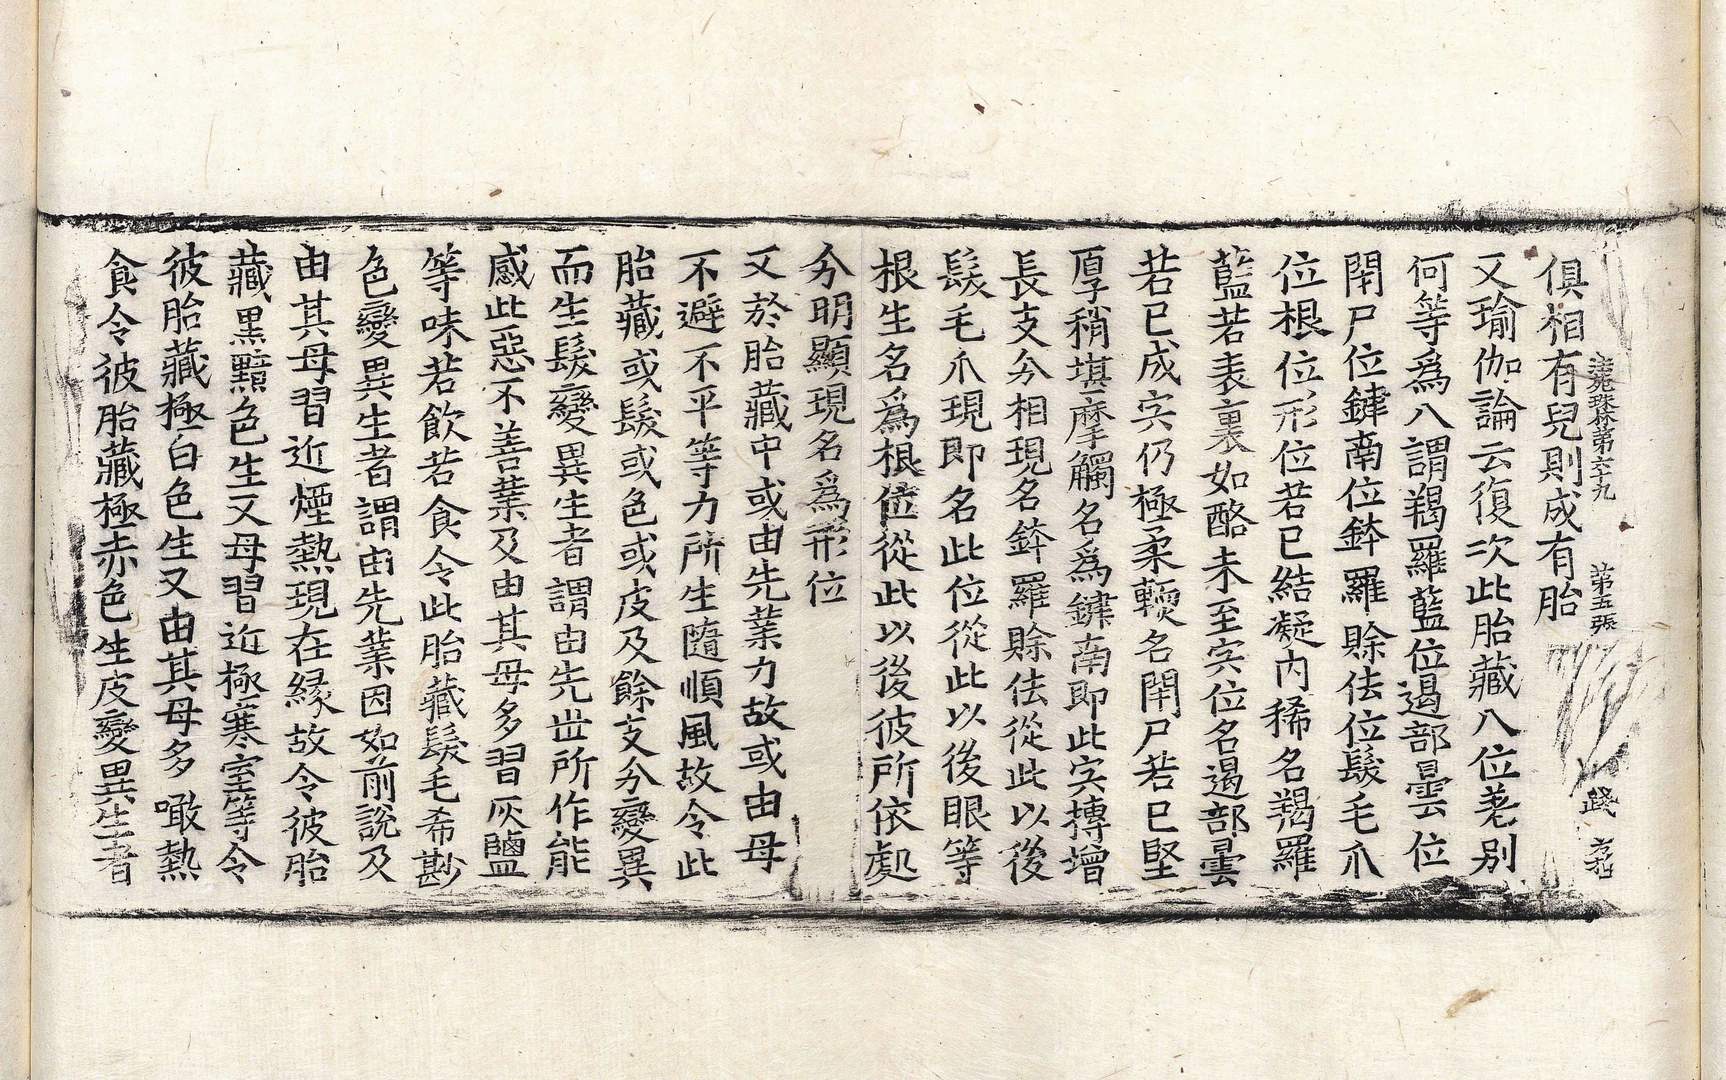 法苑珠林第六十九 第五張
俱相有兒則成有胎
又瑜伽論云復次此胎藏八位差別
何等爲八謂羯羅藍位遏部曇位
閇尸位鍵南位鉢羅賖佉位髮毛爪
位根位形位若已結凝內稀名羯羅
藍若表裏如酪未至宍位名遏部曇
若已成宍仍極柔輭名閇尸若已堅
厚稍堪摩觸名爲鍵南即此宍摶增
長支分相現名鉢羅賖佉從此以後
髮毛爪現即名此位從此以後眼等
根生名爲根位從此以後彼所依處
分明顯現名爲形位
又於胎藏中或由先業力故或由母
不避不平等力所生隨順風故令此
胎藏或髮或色或皮及餘支分變異
而生髮變異生者謂由先世所作能
感此惡不善業及由其母多習灰鹽
等味若飲若食令此胎藏髮毛希尠
色變異生者謂由先業因如前說及
由其母習近煙熱現在緣故令彼胎
藏黑黯色生又母習近極寒室等令
彼胎藏極白色生又由其母多噉熱
食令彼胎藏極赤色生皮變異生者